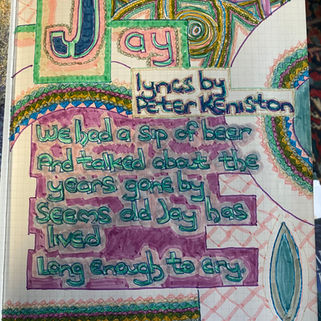 Jay
lyrics by
Peter Keniston
We had a sip of beer
And talked about the
years gone by
Seems old Jay has
lived
Long enough to cry.